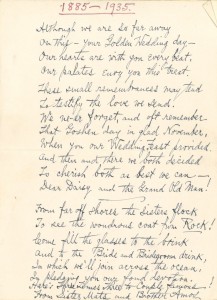 1885-1935.
Although we are so far away
On this - your Golden Wedding day -
Our hearts are with you every beat.
Our palates envy you this treat.
These small remembrances may tend
To testify the love we send.
We ne'er forget, and oft remember
That Goshen day in glad November,
When you our Wedding feast provided.
And then and there we both decided
To cherish both as best we can -
Dear Daisy and the Grand Old Man!
From far off shores the sisters flock
To see the wondrous goat him Rock!
Come fill the glasses to the brink
And to the Bride and Bridegroom drink,
In which we'll join across the ocean,
In pledging you our fond devotion.
Here's three times three to Couple
From Sister Meta, and Brother